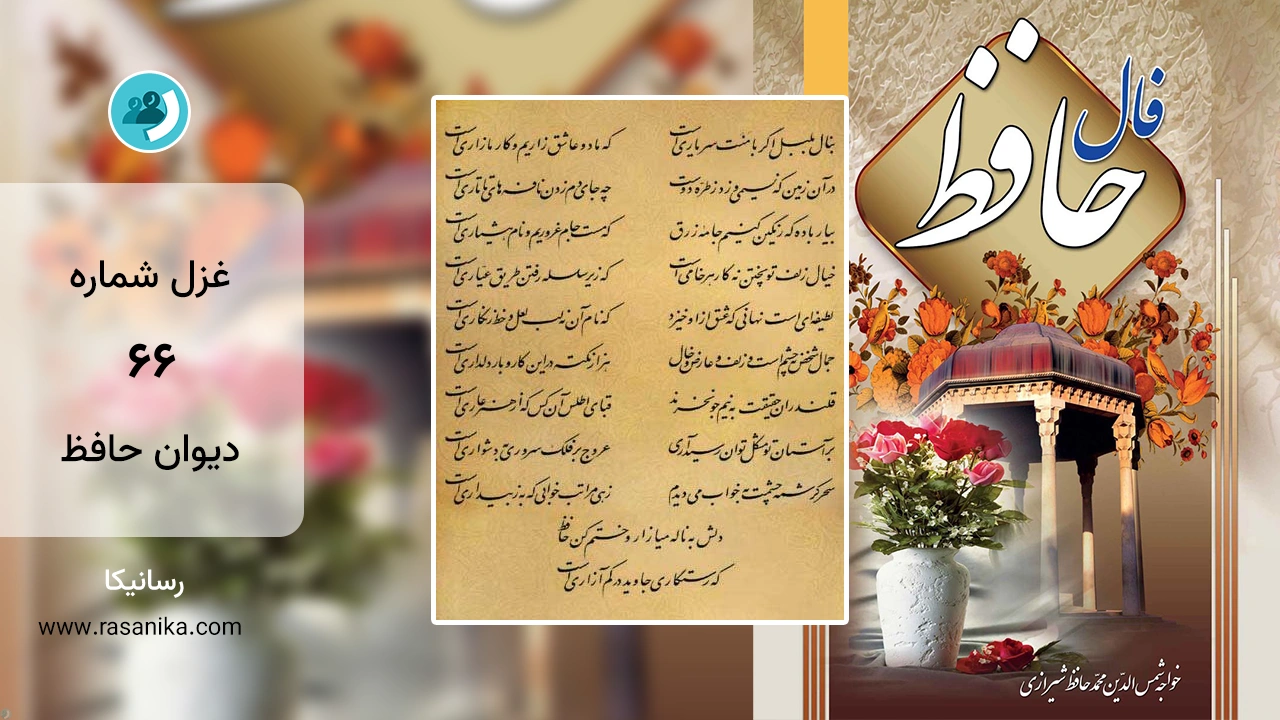 غزل شماره
۶۶
دیوان حافظ
رسانیکا
www.rasanika.com
بنال بلبل اگر با منت سر یاریست که ما دو عاشق زاریم و کار ما زاریست
در آن زمین که نسیمی وزد ز طره دوست چه جای دم زدن نافه‌های تاتاریست
بیار باده که رنگین کنیم جامه زرق که مست جام غروریم و نام هشیاریست
خیال زلف تو پختن نه کار هر خامیست که زیر سلسله رفتن طریق عیاریست
لطیفه‌ای است نهانی که عشق از او خیزد که نام آن نه لب لعل و خط زنگاریست
جمال شخص نه چشم است و زلف و عارض و خال هزار نکته در این کار و بار دلداریست
قلندران حقیقت به نیم جو نخرند قبای اطلس آن کس که از هنر عاریست
بر آستان تو مشکل توان رسید آری عروج بر فلک سروری به دشواریست
سحر کرشمه چشمت به خواب می‌دیدم زهی مراتب خوابی که به ز بیداریست
دلش به ناله میازار و ختم کن حافظ
که رستگاری جاوید در کم آزاریست
فال
حافظ
خواجه شمس الدین محمد حافظ شیرازی